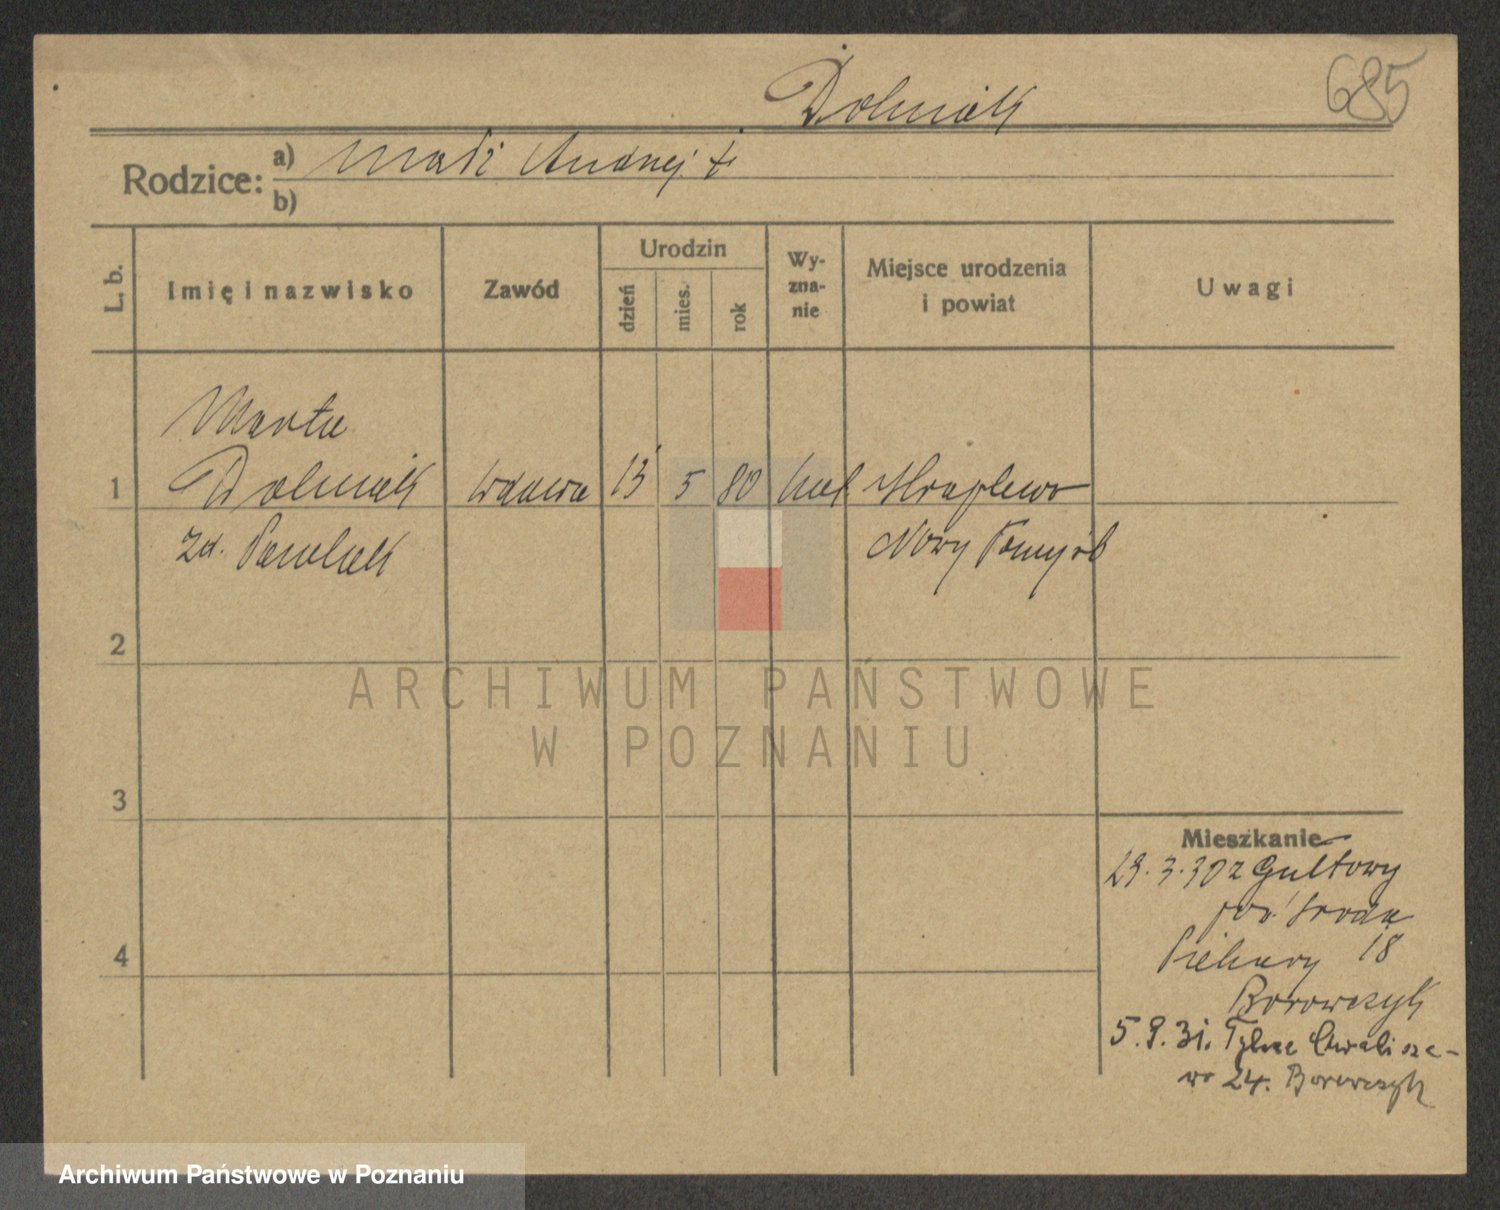 685
Dolniak
Rodzice:
a) mąż Andrzej †
b)
L. b.
Imię i nazwisko
Zawód
Urodzin
dzień
mies.
rok
Wy-
zna-
nie
Miejsce urodzenia
i powiat
Uwagi
Marta
1 Dolniak wdowa 13 5 80 kat.
Nowy Tomyśl
2
3
4
Mieszkanie
29.3.30 z Gułtowy
pow. Środa
Piekary 18
Borowczyk
5.9.31. Tylne Chwalisze-
wo 24. Borowczyk
ARCHIWUM PAŃSTWOWE
W POZNANIU
Archiwum Państwowe w Poznaniu